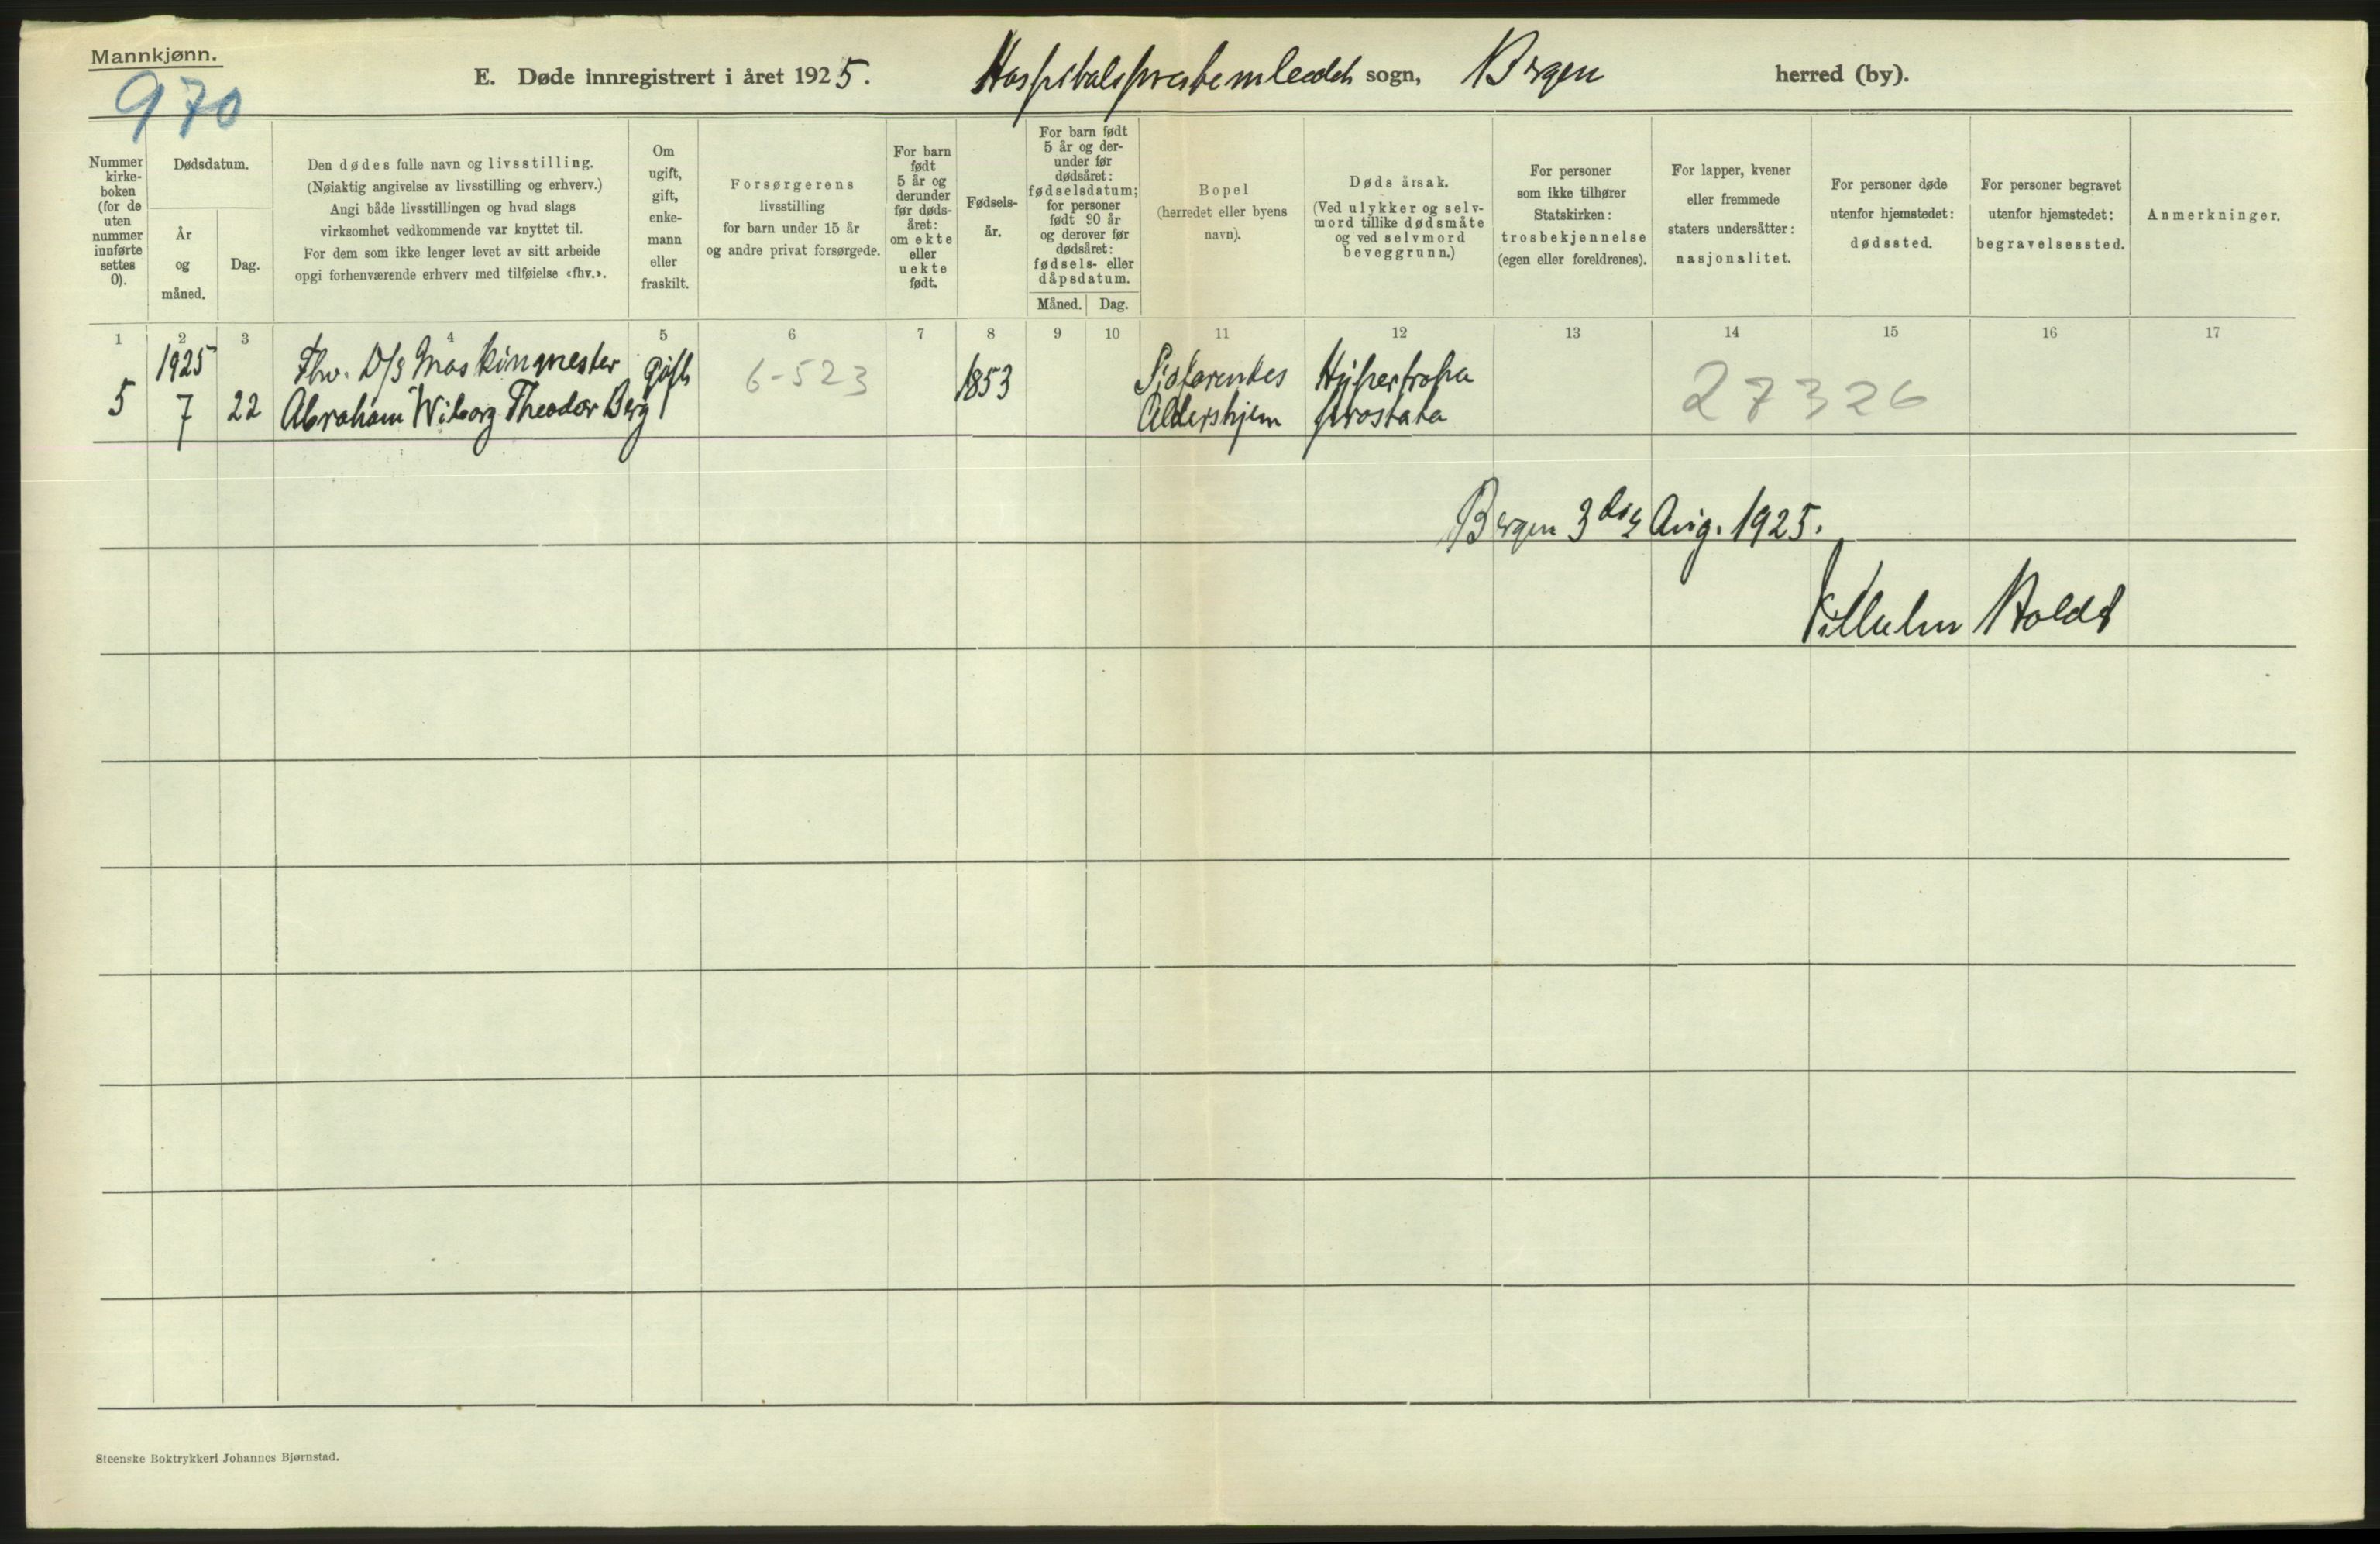 Mannkjønn.
970
E. Døde innregistrert i året 1925. Hospitalsprestembedet sogn, Bergen herred (by).
Nummer kirke-boken (for de uten nummer innførte settes 0).
Dødsdatum.
År og måned.
Dag.
Den dødes fulle navn og livsstilling.
(Nøiaktig angivelse av livsstilling og erhverv.)
Angi både livsstillingen og hvad slags
virksomhet vedkommende var knyttet til.
For dem som ikke lenger levet av sitt arbeide
opgi forhenværende erhverv med tilføielse «fhv.».
Om ugift, gift, enke-mann eller fraskilt.
Forsørgerens
livsstilling
for barn under 15 år
og andre privat forsørgede.
For barn født 5 år og derunder før døds-året: om ekte eller uekte født.
Fødsels-år.
For barn født 5 år og der-under før dødsåret: fødselsdatum; for personer født 90 år og derover før dødsåret: fødsels- eller dåpsdatum.
Måned. Dag.
Bopel
(herredet eller byens
navn).
Dødsårsak.
(Ved ulykker og selv-
mord tillike dødsmåte
og ved selvmord
beveggrunn.)
For personer
som ikke tilhører
Statskirken:
trosbekjennelse
(egen eller foreldrenes).
For lapper, kvener
eller fremmede
staters undersåtter:
nasjonalitet.
For personer døde
utenfor hjemstedet:
dødssted.
For personer begravet
utenfor hjemstedet:
begravelsessted.
Anmerkninger.
1 2 3 4 5 6 7 8 9 10 11 12 13 14 15 16 17
1925 Fhv. D/S Maskinmester gift 6-523 1853 Hypertrofia 27326
5 7 22 Abraham Wiborg Theodor Berg Aldershjem prostata
Bergen 3die Aug. 1925.
Vilhelm Holdt
Steenske Boktrykkeri Johannes Bjørnstad.